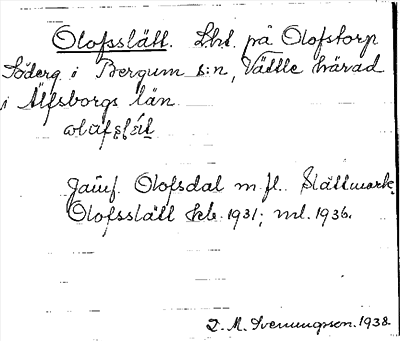 Olofsslätt. Lht. på Olofstorp
Söderg. i Bergum s:n, Vättle härad
i Älfsborgs län.
Jämf. Olofsdal m. fl. Slättmark.
Olofsslätt kb. 1931; ml. 1936.
T. M. Svenungsson. 1938.